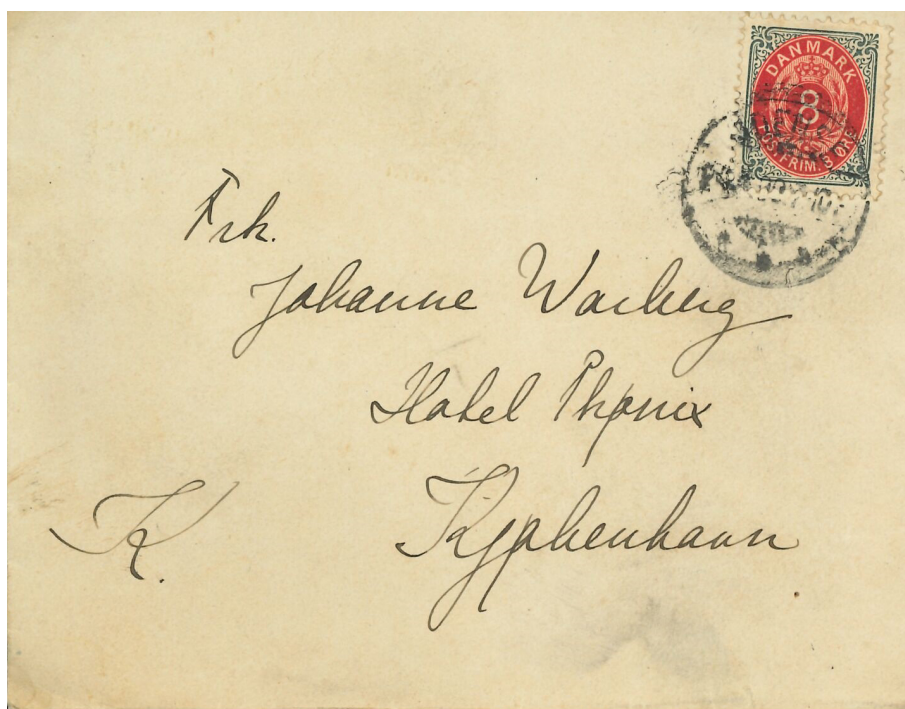 DANMARK
8
POSTFRIM. 8 ØRE
Frk.
Johanne Warberg
Hotel Phønix
Kjøbenhavn
K.